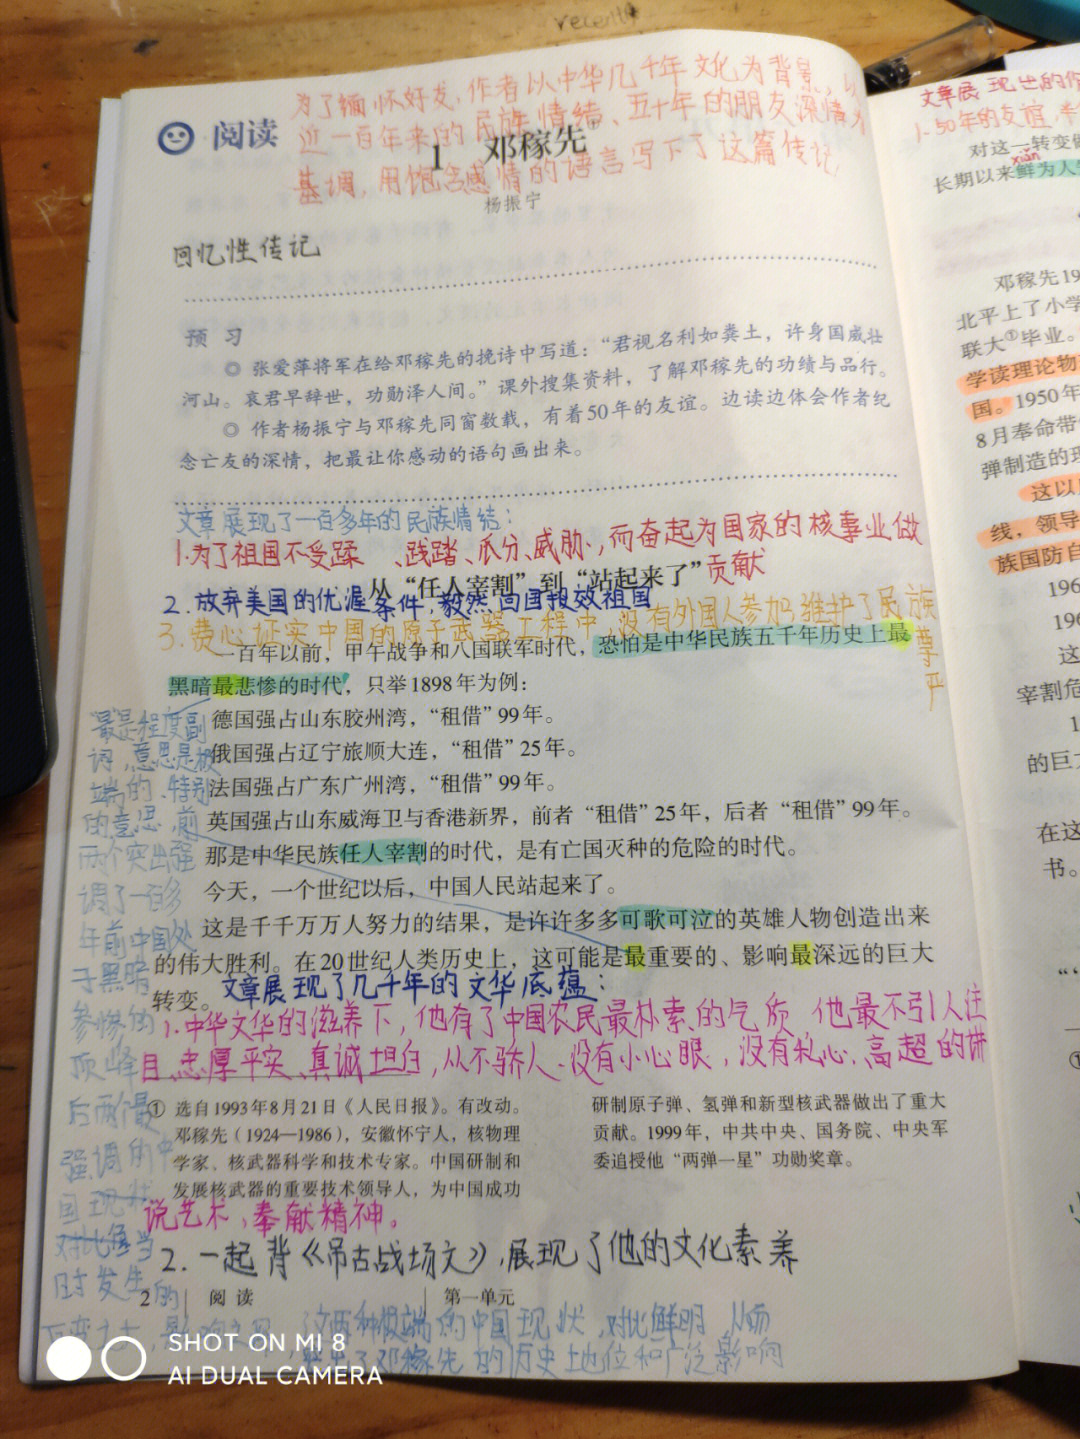 recently
为了缅怀好友，作者以中华几千年文化为背景，以
近一百年来的民族情结、五十年的朋友深情为
基调，用饱含感情的语言写下了这篇传记
阅读
1 邓稼先①
杨振宁
回忆性传记
预 习
◎ 张爱萍将军在给邓稼先的挽诗中写道：“君视名利如粪土，许身国威壮
河山。哀君早辞世，功勋泽人间。”课外搜集资料，了解邓稼先的功绩与品行。
◎ 作者杨振宁与邓稼先同窗数载，有着50年的友谊。边读边体会作者纪
念亡友的深情，把最让你感动的语句画出来。
文章展现了一百多年的民族情结：
1.为了祖国不受蹂 、践踏、瓜分、威胁、，而奋起为国家的核事业做
贡献
从“任人宰割”到“站起来了”
2. 放弃美国的优渥条件，毅然回国报效祖国
3. 费心证实中国的原子武器工程中，没有外国人参加维护了民族
尊严
一百年以前，甲午战争和八国联军时代，恐怕是中华民族五千年历史上最
黑暗最悲惨的时代，只举1898年为例：
德国强占山东胶州湾，“租借”99年。
俄国强占辽宁旅顺大连，“租借”25年。
法国强占广东广州湾，“租借”99年。
英国强占山东威海卫与香港新界，前者“租借”25年，后者“租借”99年。
那是中华民族任人宰割的时代，是有亡国灭种的危险的时代。
今天，一个世纪以后，中国人民站起来了。
这是千千万万人努力的结果，是许许多多可歌可泣的英雄人物创造出来
的伟大胜利。在20世纪人类历史上，这可能是最重要的、影响最深远的巨大
转变。
“最”是程度副
词，意思是极
端的、特别
的意思，前
两个突出强
调了一百多
年前中国处
于黑暗
惨的
顶峰
后两个最
强调的中
国现状
对比强当
时发生的
文章展现了几千年的文华底蕴：
1.中华文华的滋养下，他有了中国农民最朴素的气质，他最不引人注
目、忠厚平实、真诚坦白，从不骄人、没有小心眼，没有私心、高超的讲
说艺术，奉献精神。
① 选自1993年8月21日《人民日报》。有改动。
邓稼先（1924—1986），安徽怀宁人，核物理
学家、核武器科学和技术专家。中国研制和
发展核武器的重要技术领导人，为中国成功
研制原子弹、氢弹和新型核武器做出了重大
贡献。1999年，中共中央、国务院、中央军
委追授他“两弹一星”功勋奖章。
2. 一起背《吊古战场文》，展现了他的文化素养
2 阅 读 第一单元
这两种极端的中国现状，对比鲜明，从而
了邓稼先的历史地位和广泛影响
SHOT ON MI 8
AI DUAL CAMERA
文章展现出的
1. 50年的友谊，
对这一转变做
xiǎn
长期以来鲜为人
邓稼先19
北平上了小学
联大①毕业。
学读理论物
国。1950年
8月奉命带
弹制造的理
这以
线，领导
族国防自
196
196
这
宰割危
1
的巨大
在这
书。